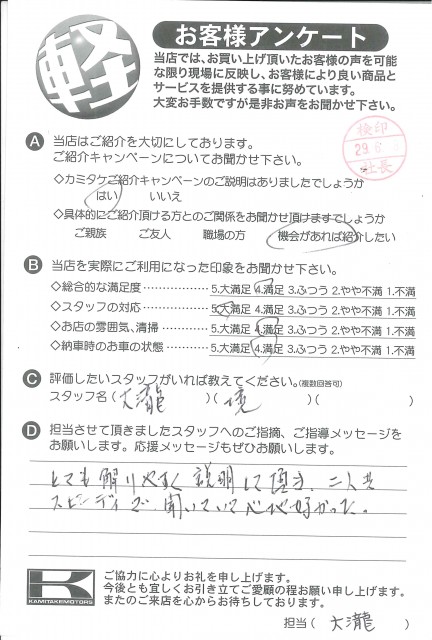 軽
お客様アンケート
当店では、お買い上げ頂いたお客様の声を可能
な限り現場に反映し、お客様により良い商品と
サービスを提供する事に努めています。
大変お手数ですが是非お声をお聞かせ下さい。
検印
29.8.
社長
A 当店はご紹介を大切にしております。
ご紹介キャンペーンについてお聞かせ下さい。
◇カミタケご紹介キャンペーンのご説明はありましたでしょうか
はい いいえ
◇具体的にご紹介頂ける方とのご関係をお聞かせ頂けますでしょうか
ご親族 ご友人 職場の方 機会があれば紹介したい
B 当店を実際にご利用になった印象をお聞かせ下さい。
◇総合的な満足度 5.大満足 4.満足 3.ふつう 2.やや不満 1.不満
◇スタッフの対応 5.大満足 4.満足 3.ふつう 2.やや不満 1.不満
◇お店の雰囲気、清掃 5.大満足 4.満足 3.ふつう 2.やや不満 1.不満
◇納車時のお車の状態 5.大満足 4.満足 3.ふつう 2.やや不満 1.不満
C 評価したいスタッフがいれば教えてください。(複数回答可)
スタッフ名( 大瀧 )( 境 )( )
D 担当させて頂きましたスタッフへのご指摘、ご指導メッセージを
お願いします。応援メッセージもぜひお願いします。
とても解りやすく説明して頂き、二人共
スピーディで聞いていて心地好かった。
K
KAMITAKEMOTORS
ご協力に心よりお礼を申し上げます。
今後とも宜しくお引き立てご愛顧の程お願い申し上げます。
またのご来店を心からお待ちしております。
担当( 大瀧 )